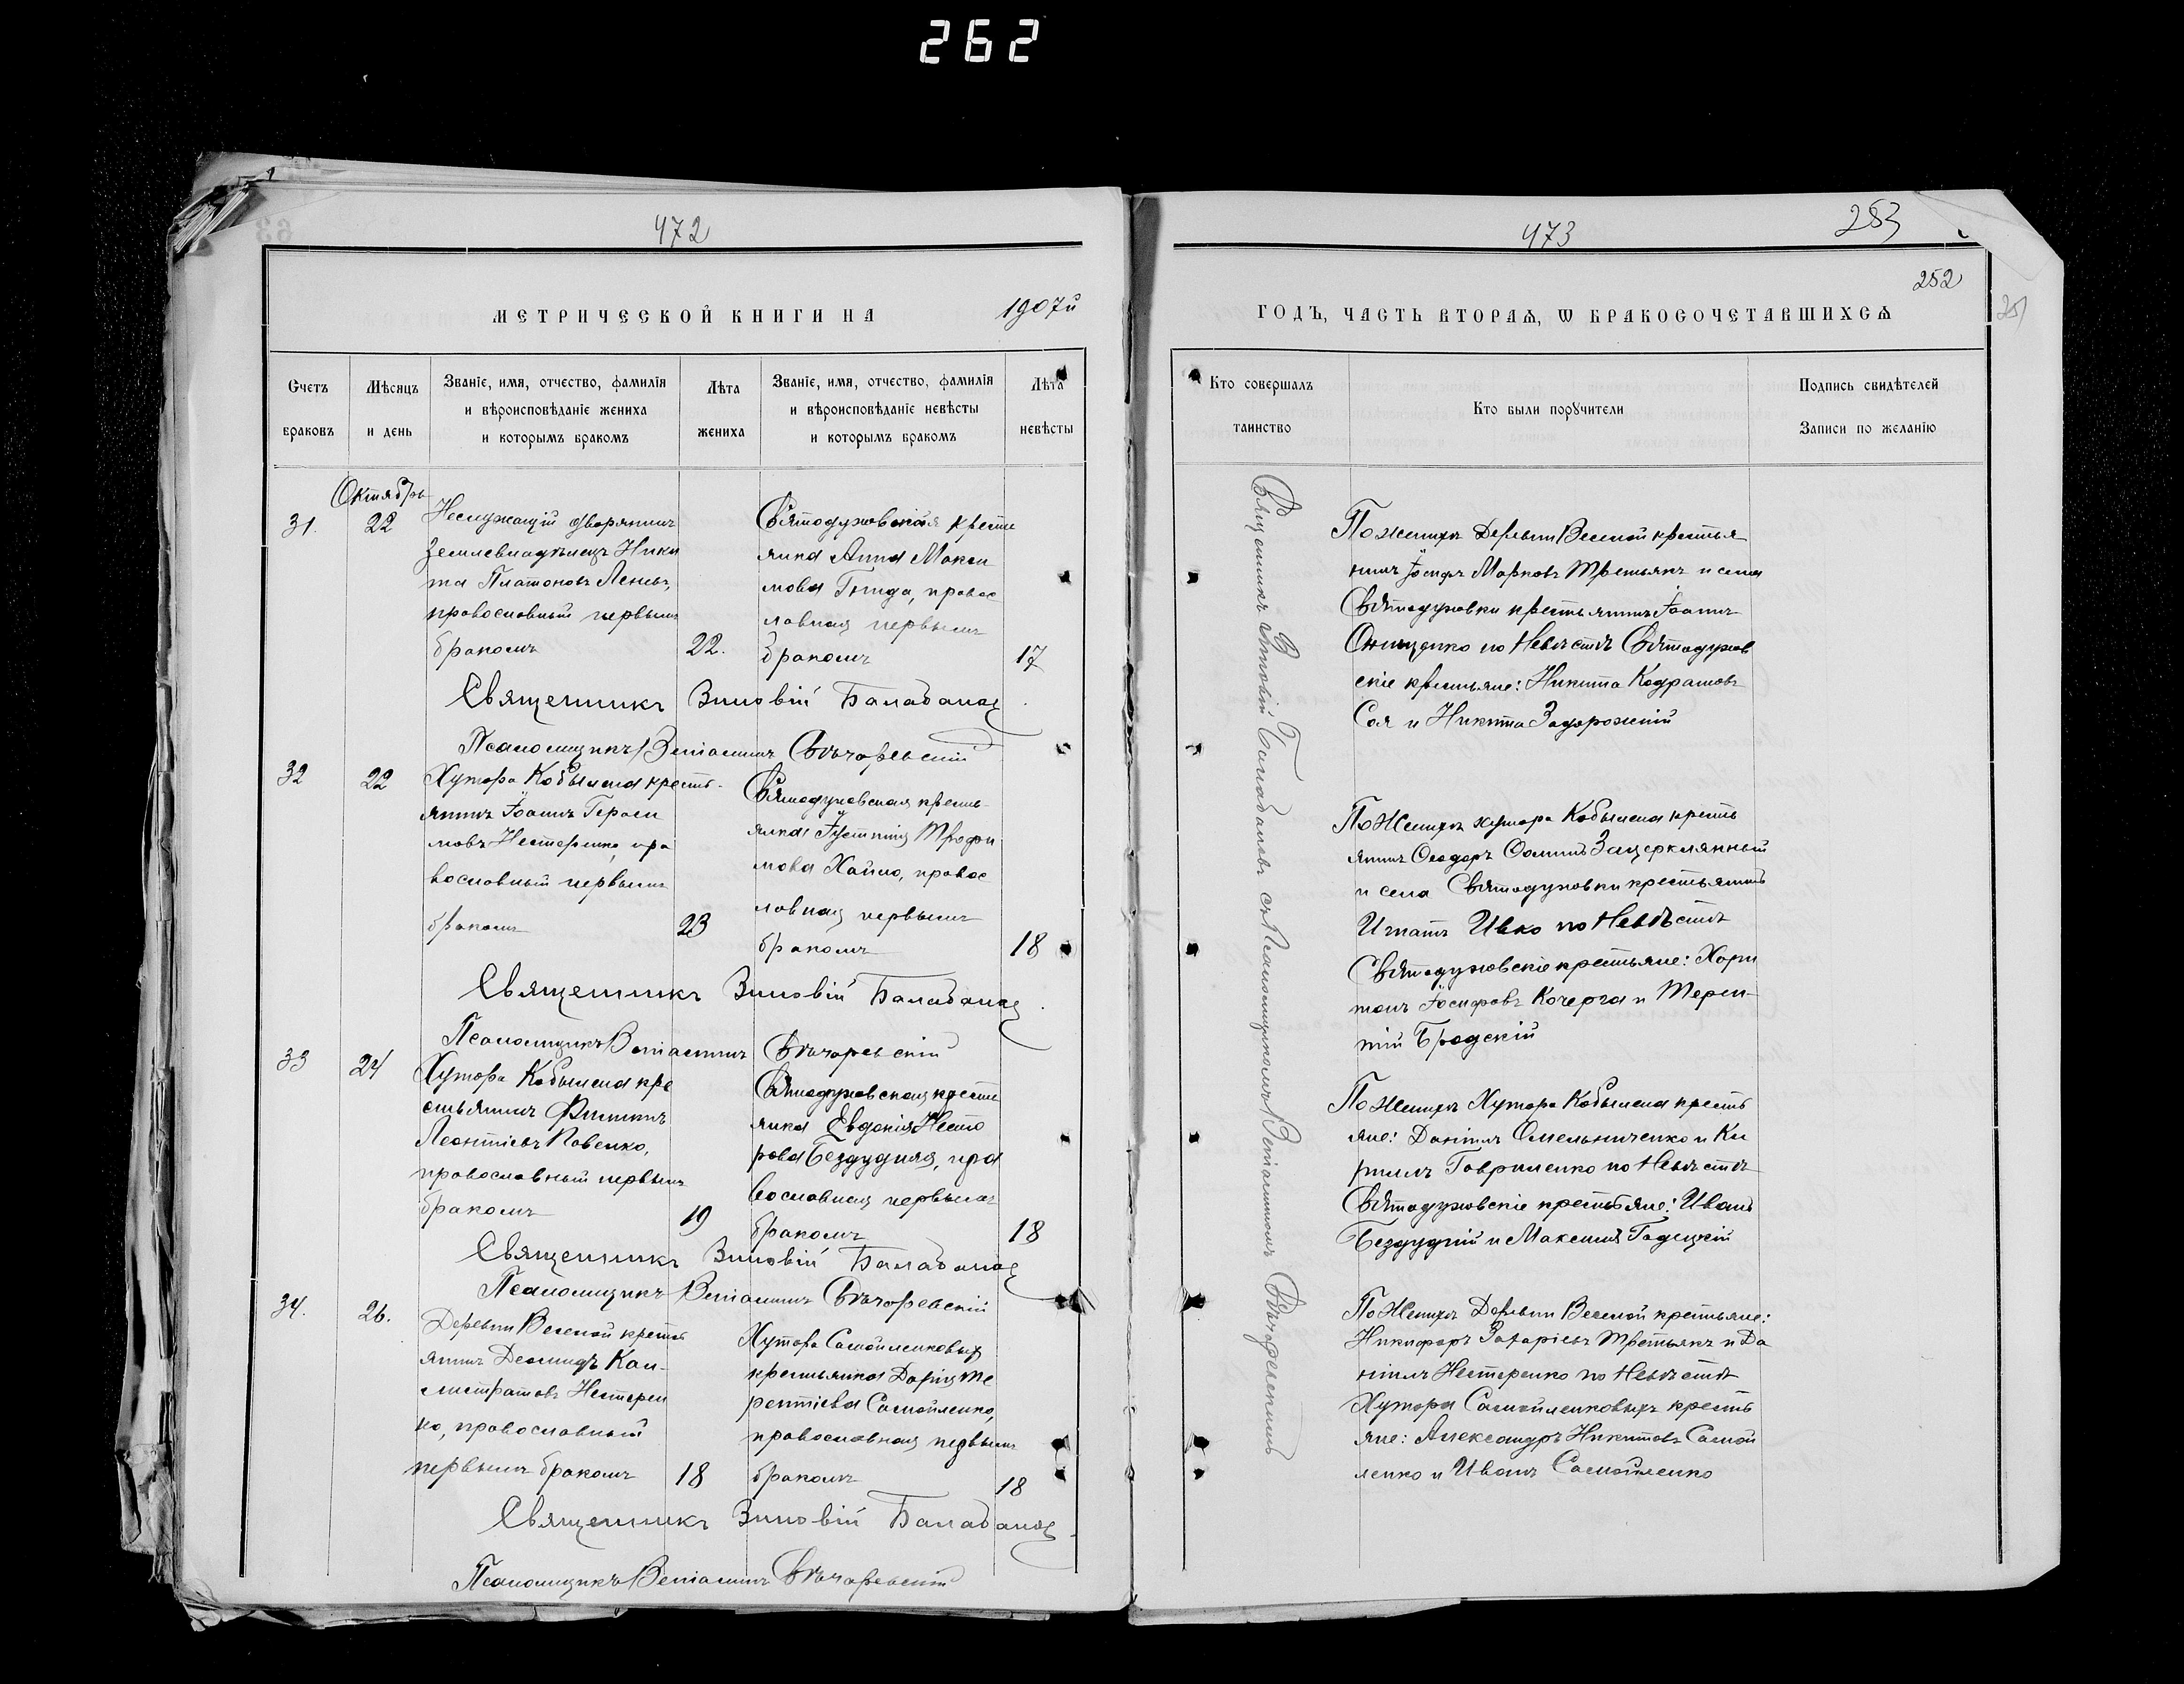 262
472
МЕТРИЧЕСКОЙ КНИГИ НА 1907й
Счетъ браковъ
Мѣсяцъ и день
Званіе, имя, отчество, фамилія и вѣроисповѣданіе жениха и которымъ бракомъ
Лѣта жениха
Званіе, имя, отчество, фамилія и вѣроисповѣданіе невѣсты и которымъ бракомъ
Лѣта невѣсты
Октябрь
31. 22
Неслужащій дворянинъ
землевладѣлецъ Ники
та Платоновъ
православный первымъ
бракомъ 22.
Святодуховская кресть
янка Анна Макси
мова Гнида, правос
лавная первымъ
бракомъ 17
Священникъ Зиновій Балабановъ
Псаломщикъ Веніаминъ
32 22
Хутора Кобылена кресть-
янинъ Іоаннъ Гераси
мовъ Нестеренко, пра
вославный первымъ
бракомъ 23
Святодуховская кресть-
янка Іустинія Трофи
мова Хайло, правос
лавная первымъ
бракомъ 18
Священникъ Зиновій Балабановъ
Псаломщикъ Веніаминъ
33 24
Хутора Кобылена кре
стьянинъ Филиппъ
Леонтіевъ Павенко,
православный первымъ
бракомъ 19
Святодуховская кресть
янка Евдокія Несто
рова Бездудняя, пра
вославная первымъ
бракомъ 18
Священникъ Зиновій Балабановъ
Псаломщикъ Веніаминъ
34. 26.
Деревни Веселой кресть
янинъ Деомидъ Кал-
листратовъ Нестерен
ко, православный
первымъ бракомъ 18
Хутора Самойленковыхъ
крестьянка Дарія Те
рентіева Самойленко,
православная первымъ
бракомъ 18
Священникъ Зиновій Балабановъ
Псаломщикъ Веніаминъ
473 253
252
251
ГОДЪ, ЧАСТЬ ВТОРАѦ, Ѡ БРАКОСОЧЕТАВШИХСѦ
Кто совершалъ таинство
Кто были порꙋчители
Подпись свидѣтелей Записи по желанію
Священникъ Зиновій Балабановъ съ Псаломщикомъ Веніаминомъ
По женихѣ Деревни Веселой крестья
нинъ Іосифъ Марковъ Третьякъ и села
Святодуховки крестьянинъ Іоаннъ
Онищенко по Невѣстѣ Святодухов
скіе крестьяне: Никита Кодратовъ
Соя и Никита Задорожній
По Женихѣ хутора Кобылена кресть
янинъ Ѳеодоръ Ѳоминъ Зацерклянный
и села Святодуховки крестьянинъ
Игнатъ Ивко по Невѣстѣ
Святодуховскіе крестьяне: Хари
тонъ Іосифовъ Кочерга и Терен-
тій Бродскій
По Женихѣ Хутора Кобылена кресть
яне: Даніилъ Омельниченко и Ки
риллъ Гавриленко по Невѣстѣ
Святодуховскіе крестьяне: Иванъ
Бездудній и Максимъ Гадецкій
По Женихѣ Деревни Веселой крестьяне:
Никифоръ Захаріевъ Третьякъ и Да
ніилъ Нестеренко по Невѣстѣ
Хутора Самойленковыхъ кресть
яне: Александръ Никитовъ Самой
ленко и Иванъ Самойленко